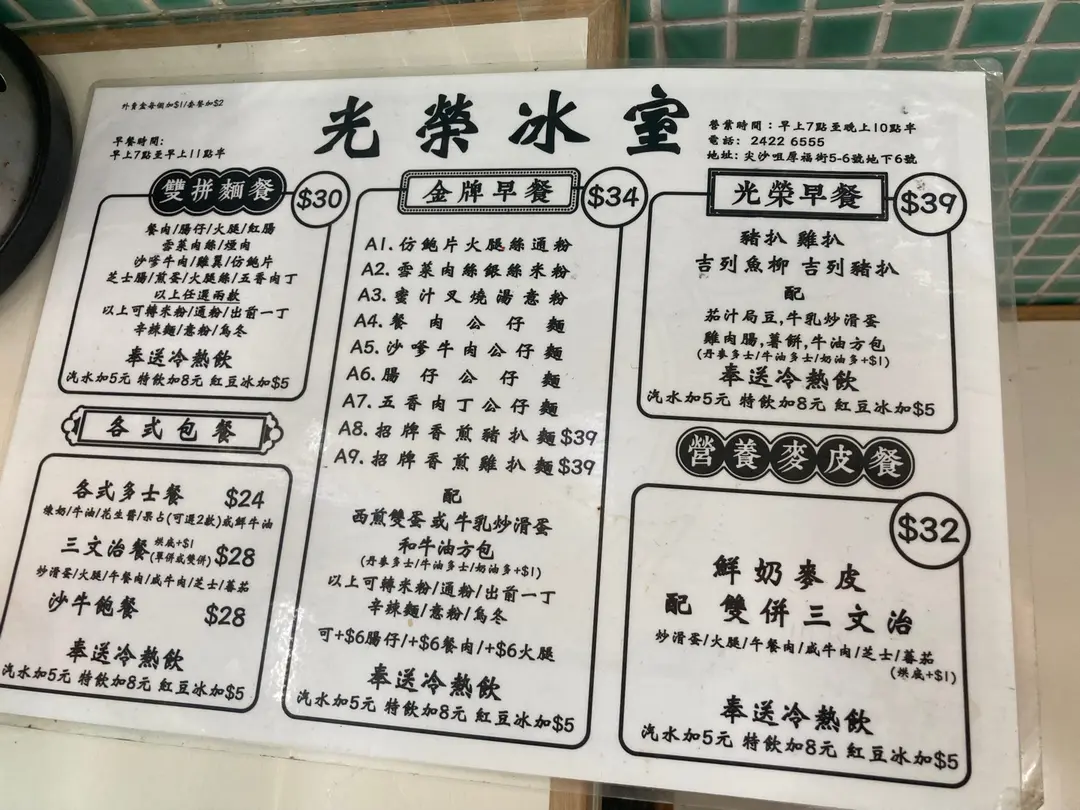 外賣盒每個加$1/套餐加$2
早餐時間:
早上7點至早上11點半
光榮冰室
營業時間：早上7點至晚上10點半
電話: 2422 6555
地址: 尖沙咀厚福街5-6號地下6號
雙拼麵餐 $30
餐肉/腸仔/火腿/紅腸
雪菜肉絲/煙肉
沙嗲牛肉/雞翼/仿鮑片
芝士腸/煎蛋/火腿絲/五香肉丁
以上任選兩款
以上可轉米粉/通粉/出前一丁
辛辣麵/意粉/烏冬
奉送冷熱飲
汽水加5元 特飲加8元 紅豆冰加$5
各式包餐
各式多士餐 $24
煉奶/牛油/花生醬/果占(可選2款)或鮮牛油
三文治餐 烘底+$1 (單併或雙併) $28
炒滑蛋/火腿/午餐肉/咸牛肉/芝士/蕃茄
沙牛飽餐 $28
奉送冷熱飲
汽水加5元 特飲加8元 紅豆冰加$5
金牌早餐 $34
A1. 仿鮑片火腿絲通粉
A2. 雪菜肉絲銀絲米粉
A3. 蜜汁叉燒湯意粉
A4. 餐肉公仔麵
A5. 沙嗲牛肉公仔麵
A6. 腸仔公仔麵
A7. 五香肉丁公仔麵
A8. 招牌香煎豬扒麵$39
A9. 招牌香煎雞扒麵$39
配
西煎雙蛋或牛乳炒滑蛋
和牛油方包
(丹麥多士/牛油多士/奶油多+$1)
以上可轉米粉/通粉/出前一丁
辛辣麵/意粉/烏冬
可+$6腸仔/+$6餐肉/+$6火腿
奉送冷熱飲
汽水加5元 特飲加8元 紅豆冰加$5
光榮早餐 $39
豬扒 雞扒
吉列魚柳 吉列豬扒
配
茄汁局豆,牛乳炒滑蛋
雞肉腸,薯餅,牛油方包
(丹麥多士/牛油多士/奶油多+$1)
奉送冷熱飲
汽水加5元 特飲加8元 紅豆冰加$5
營養麥皮餐
$32
鮮奶麥皮
配 雙併三文治
炒滑蛋/火腿/午餐肉/咸牛肉/芝士/蕃茄
(烘底+$1)
奉送冷熱飲
汽水加5元 特飲加8元 紅豆冰加$5